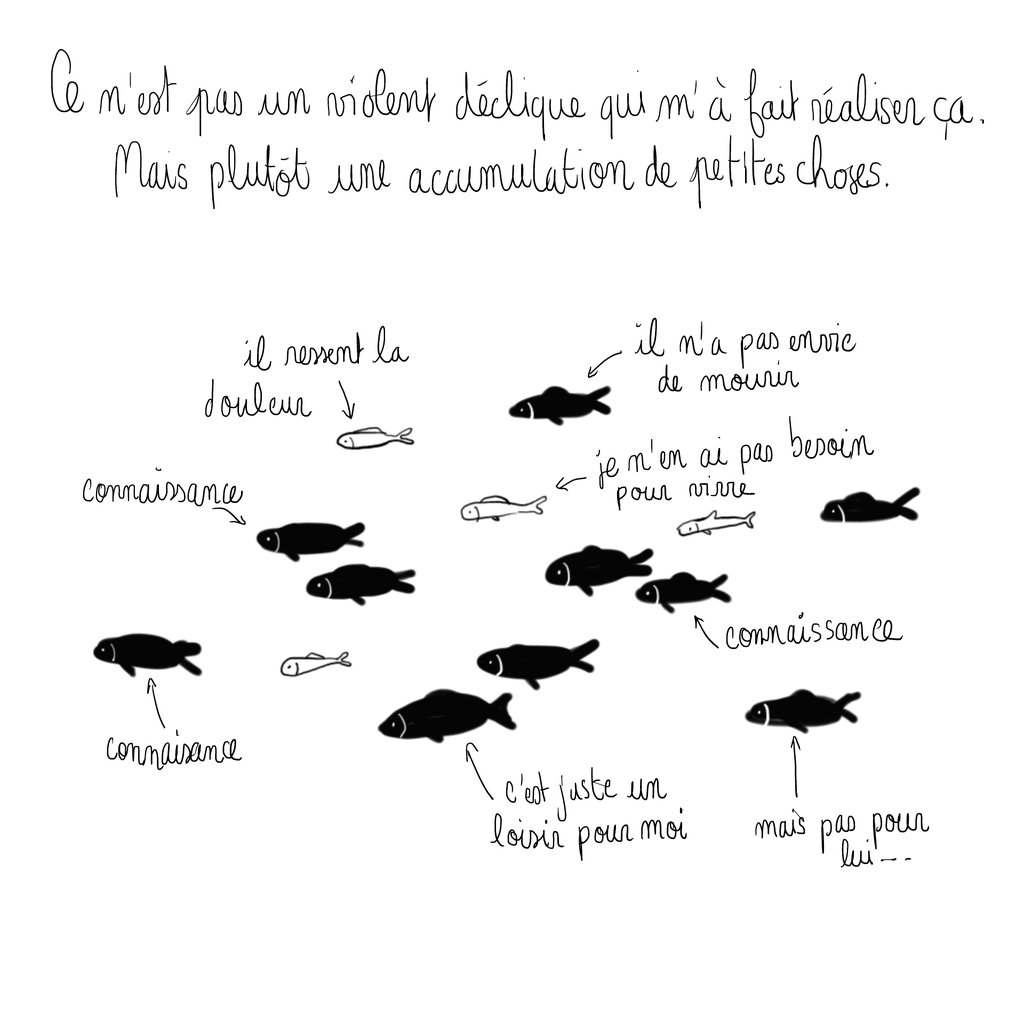 Ce n'est pas un violent déclique qui m'à fait réaliser ça.
Mais plutôt une accumulation de petites choses.
il ressent la
douleur
il n'a pas envie
de mourir
je n'en ai pas besoin
pour vivre
connaissance
connaissance
connaisance
c'est juste un
loisir pour moi
mais pas pour
lui---